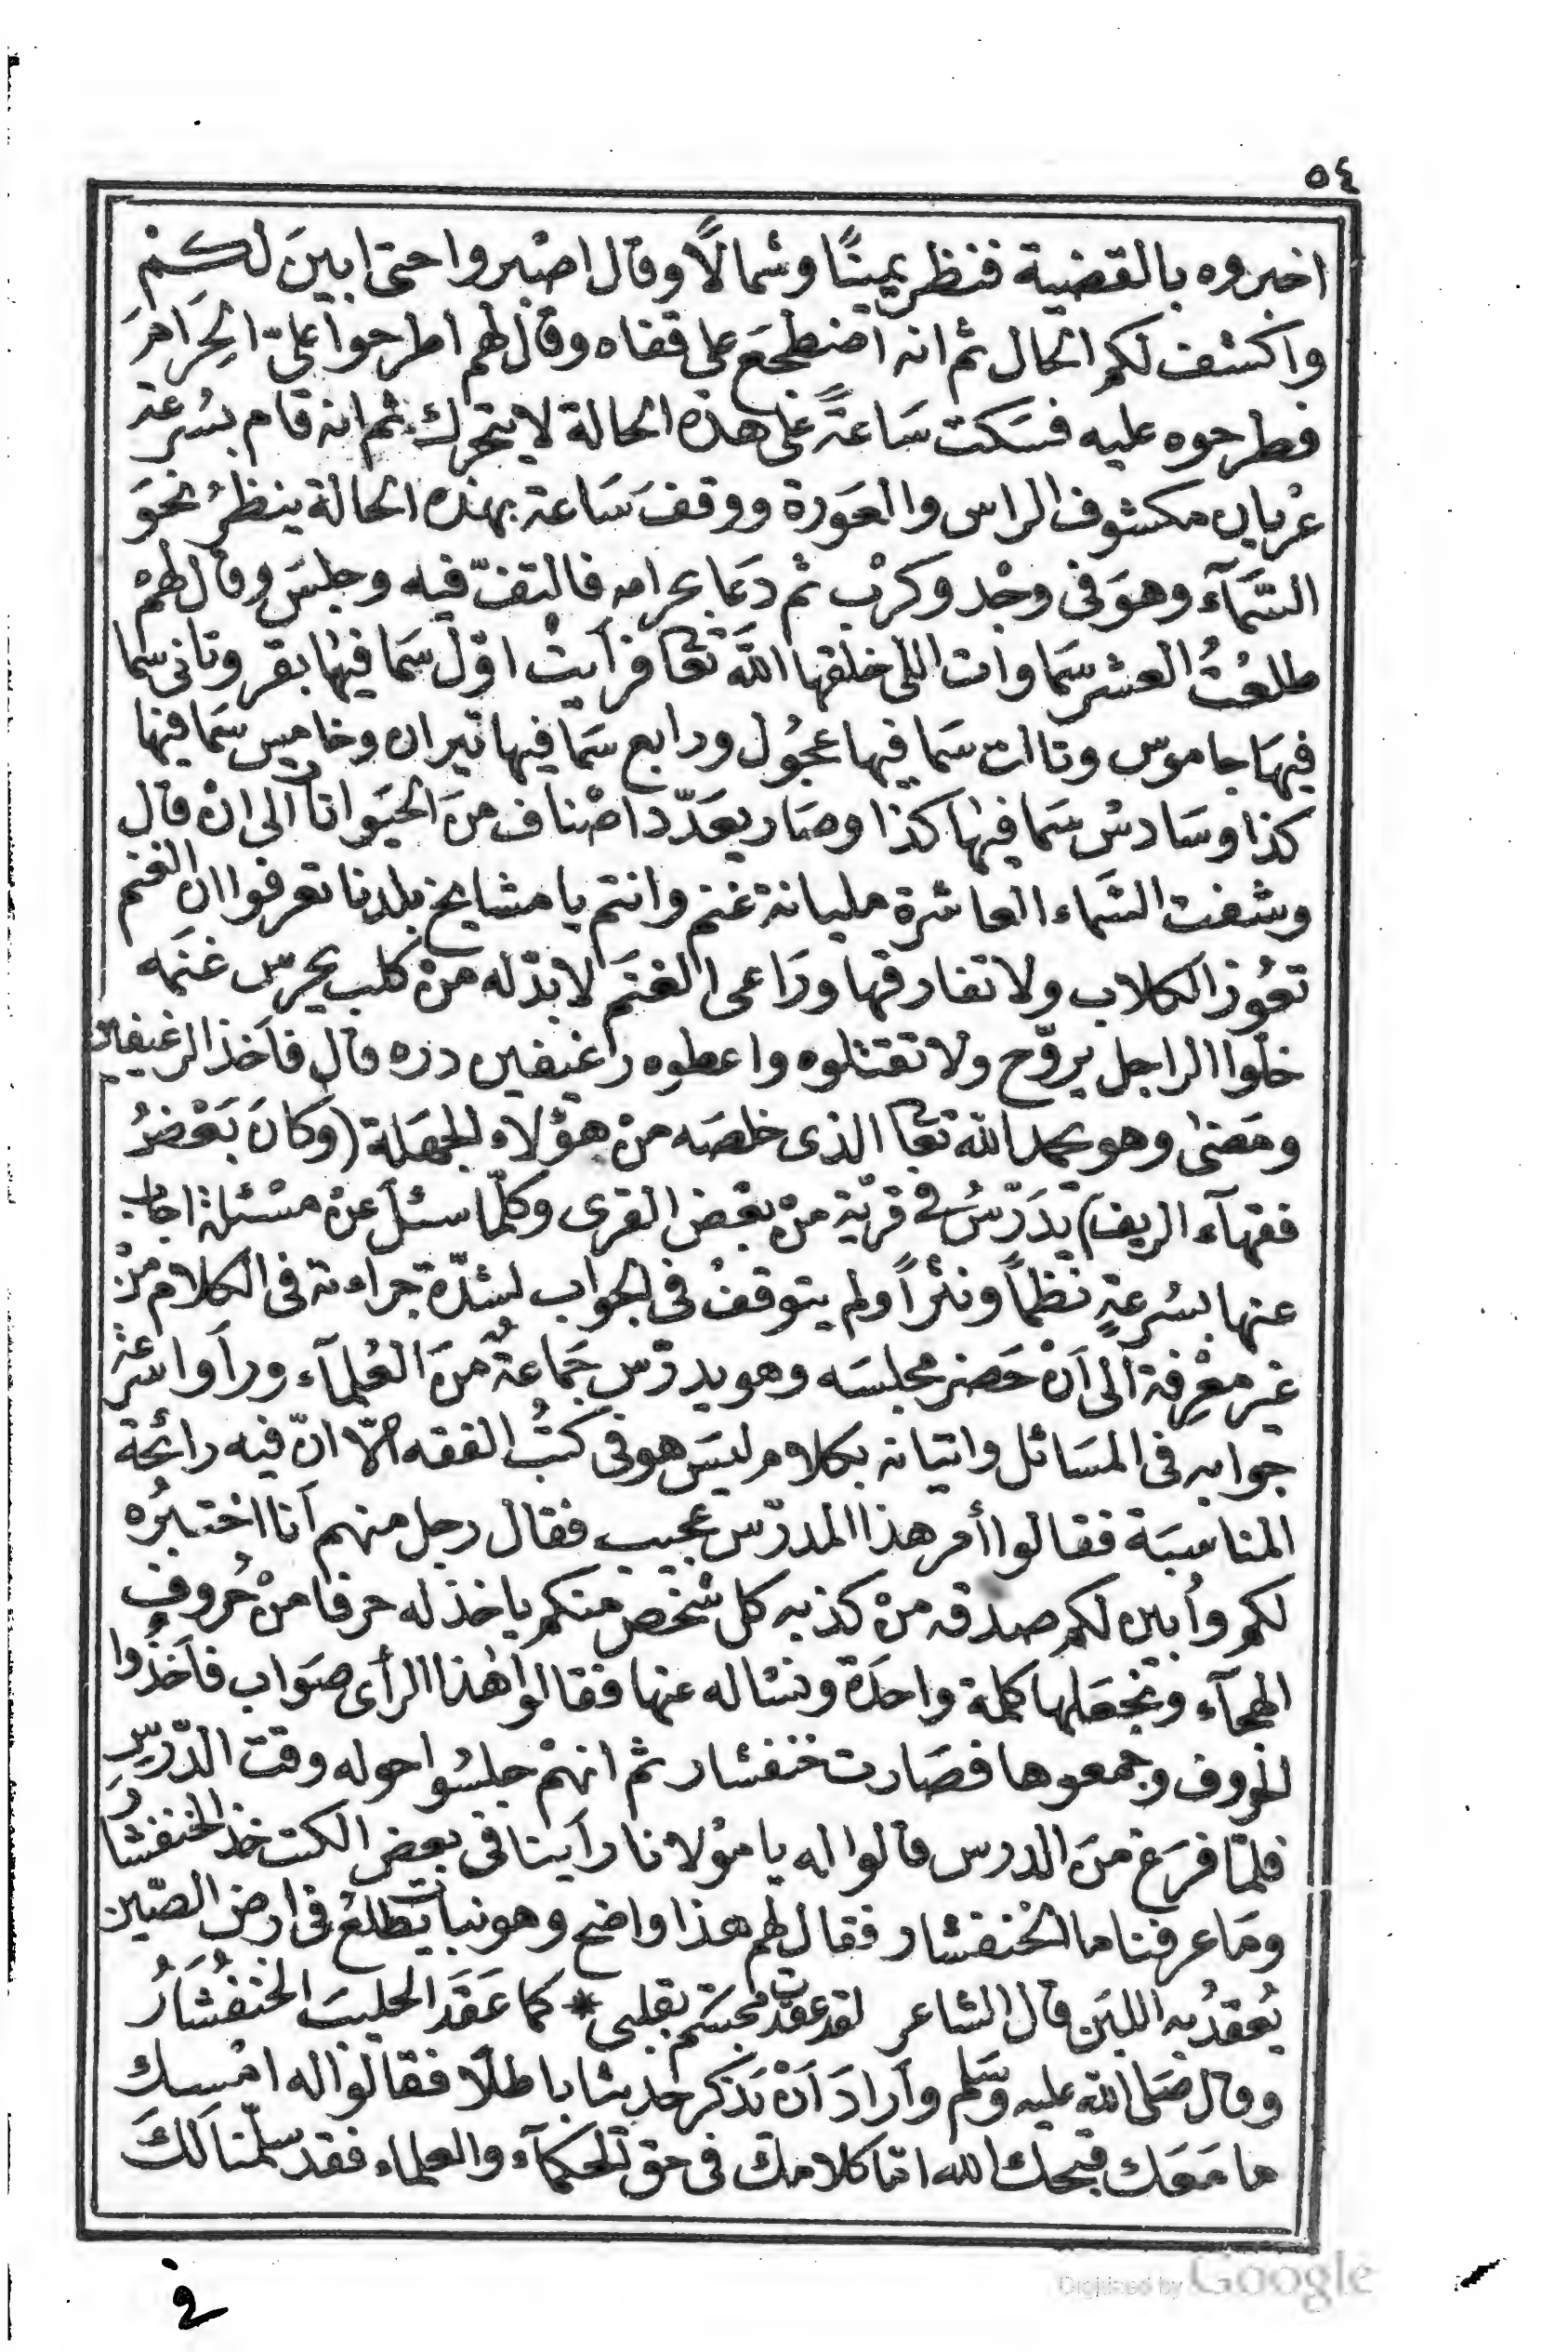 ٥٤
اخبروه بالقضية فنظر يمينًا وشمالًا وقال اصْبروا حتى ابينَ لكمْ
واكشف لكم الحال ثم انه اضطجعَ على قفاه وقال لهم اطرحوا عليّ الحِرَامَ
فطرحوه عليه فسَكت سَاعةً على هذه الحالة لا يتحرك ثم انه قام بسُرعة
عُريان مكشوف الراس والعَورة ووقفَ سَاعة بهذه الحالة ينظرُ نحوَ
السَّمَآء وهوَ فى وجْد وكرْب ثم دعَا بحرامه فالتفّ فيه وجلسَ وقال لهمْ
طلعْتُ العشر سَماوات اللى خلقها اللَّه تعا فرأيتْ اوّل سَما فيهْا بقر وتانى سما
فيهَا جاموس وتاات سَما فيها عجُول ورابع سَمَا فيها تيران وخاميس سَما فيها
كذا وسَادسْ سَما فيهْا كذا وصَار يعَدّد اصْناف منَ الحيَوانات الى انْ قال
وشفت السَّماء العاشرة مليانة غنم وانتم يا مشايخ بلدنا تعرفوا ان الغنم
تعُوز الكلاب ولا تفارقها ورَاعى الغنَم لا بدّ له منْ كلب يحرس غنَمه
خلوا الراجل يروّح ولا تقتلوه واعطوه رغيفين دره قال فأخذ الرغيفين
ومَضىٰ وهو يحمد اللّه تعا الذى خلصَه منْ هؤلاء الجهَلة (وكانَ بَعْضُ
فقهآء الريف) يدَرّسُ فى قرْية منْ بعْض القرى وكلّما سئلَ عنْ مسْئلة اجاب
عنها بسُرعةٍ نظمًا ونثرًا ولم يتوقفْ فى الجواب لشدّة جراءته فى الكلام منْ
غير معْرفة الى اَنْ حَضر مجلسَه وهو يدرّس جَماعةٌ منَ العُلمآء وراَوا سُرعة
جوابه فى المسَائل واتيانه بكلام ليسَ هو فى كتُب الفقه الّا انّ فيه رائحة
المناسبَة فقالوا أمر هذا المدرّس عجيب فقال رجل منهم اَنا اختبرُه
لكم واُبين لكم صدقه منْ كذبه كل شخص منكم ياخذ له حرفا منْ حُروفِ
الهجآء ونجْعَلها كلمة واحدَة ونساله عنها فقالوا هٰذا الرأى صَوَاب فأخذُوا
الحروف وجمعوها فصَارت خنفشار ثم انهمْ جلسُوا حوله وقت الدّرسِ
فلمّا فرَغ منَ الدرس قالوا له يا موْلانا رأينا فى بعض الكتب خذ الخنفشار
ومَا عرفنا ما الخنفشار فقال لهم هذا واضح وهو نبات يَطلعُ فى ارض الصّين
يُعقدُ به اللبَن قال الشاعر لقد عقدت محبتكم بقلبى * كما عَقَدَ الحليبَ الخنفُشَارُ
وقال صَلى اللّه عليه وسَلم وأرادَ اَنْ يَذكر حَديثا باطلًا فقالوا له امْسك
ما مَعَك قبحك اللّه امّا كلامك فى حق الحكمآء والعلماء فقد سلّمنا لكَ